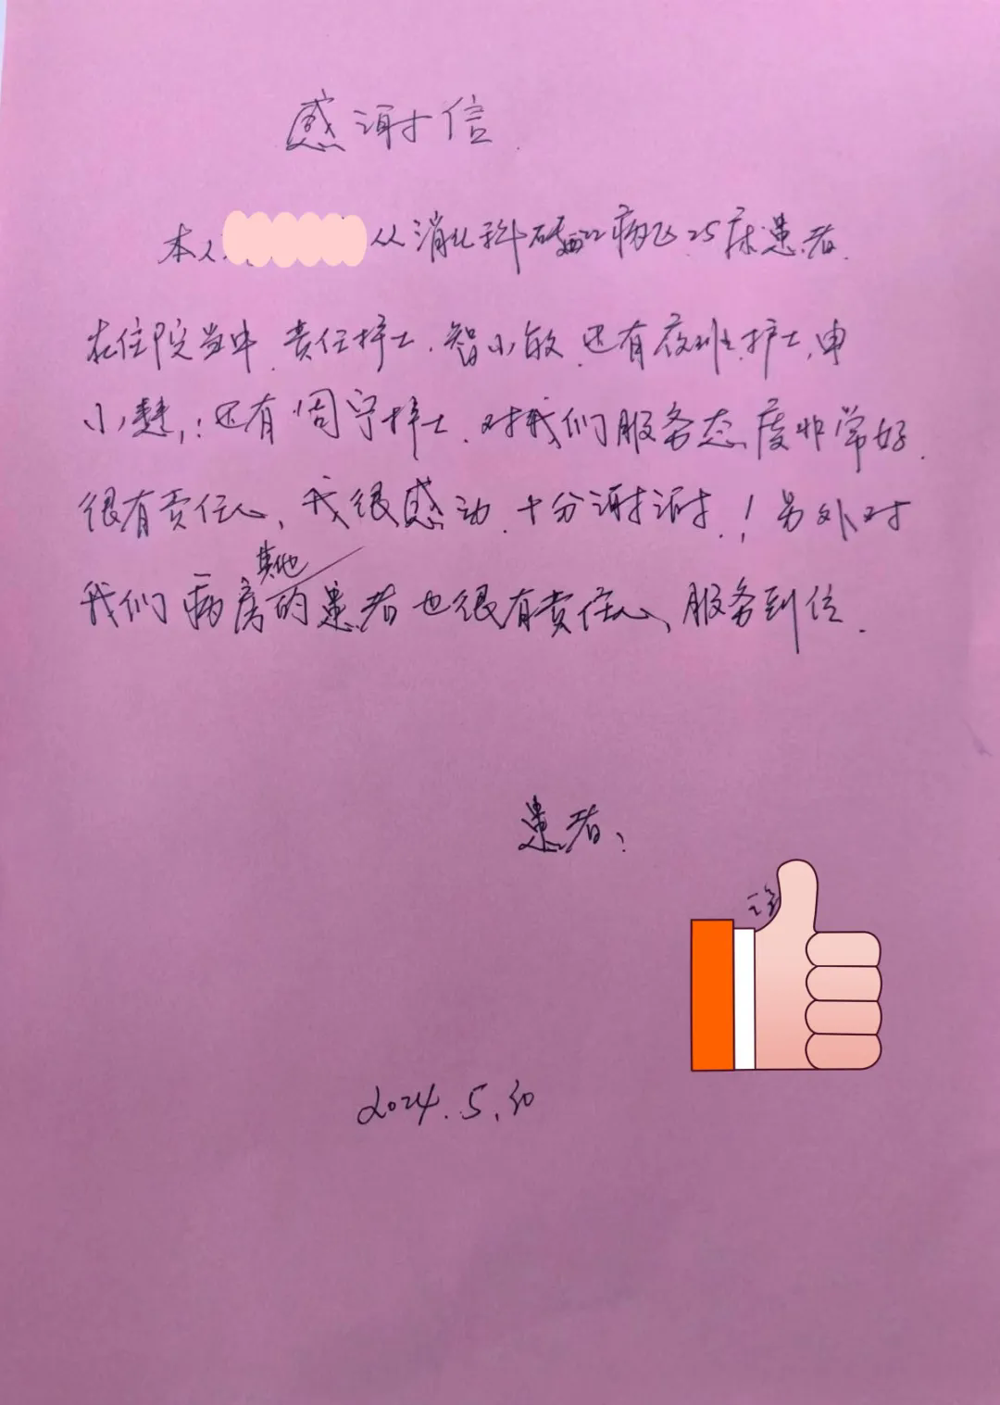 感谢信
本人 从消化科 22病区25床患者.
在住院当中.责任护士.智小敏.还有夜班护士,申
小楚,:还有周宁护士.对我们服务态度非常好.
很有责任心,我很感动.十分谢谢.!另外对
我们病房其他的患者也很有责任心、服务到位.
患者:
2024.5.30